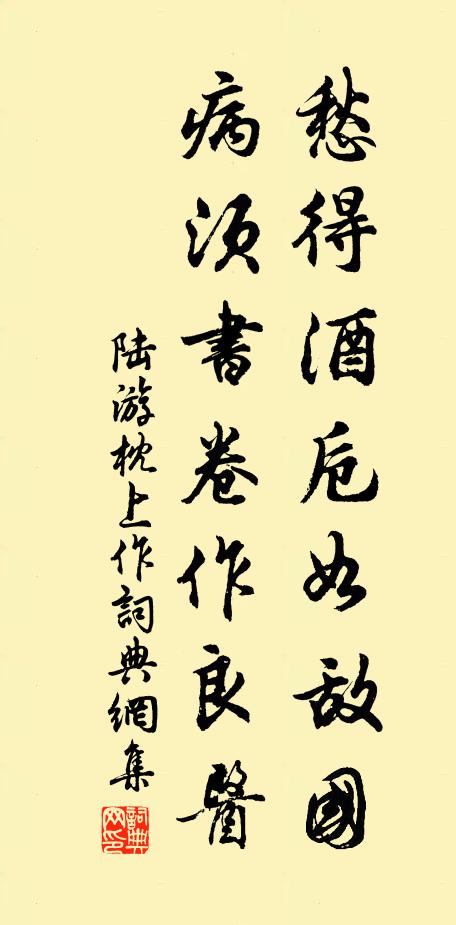 愁得酒卮如敌國
病須書卷作良醫
陆游枕上作詞典網集
詞典网印